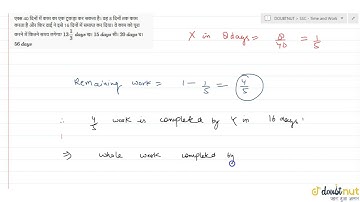 एक्स 40 दिनों में काम का एक टुकड़ा कर सकता है। वह 8 दिनों तक काम
करता है और फिर वाई ने इसे 16 दिनों में समाप्त कर दिया। वे काम को पूरा
करने में कितने समय लगेगा? 13 1/3 days या 15 days सी। 20 days या
56 days
DOUBTNUT
SSC
Time and Work
X in 8 days = 8/40 = 1/5
Remaining work = 1 - 1/5 = 4/5
∴ 4/5 work is completed by Y in 16 days.
⇒ whole work completed by
doubtnut